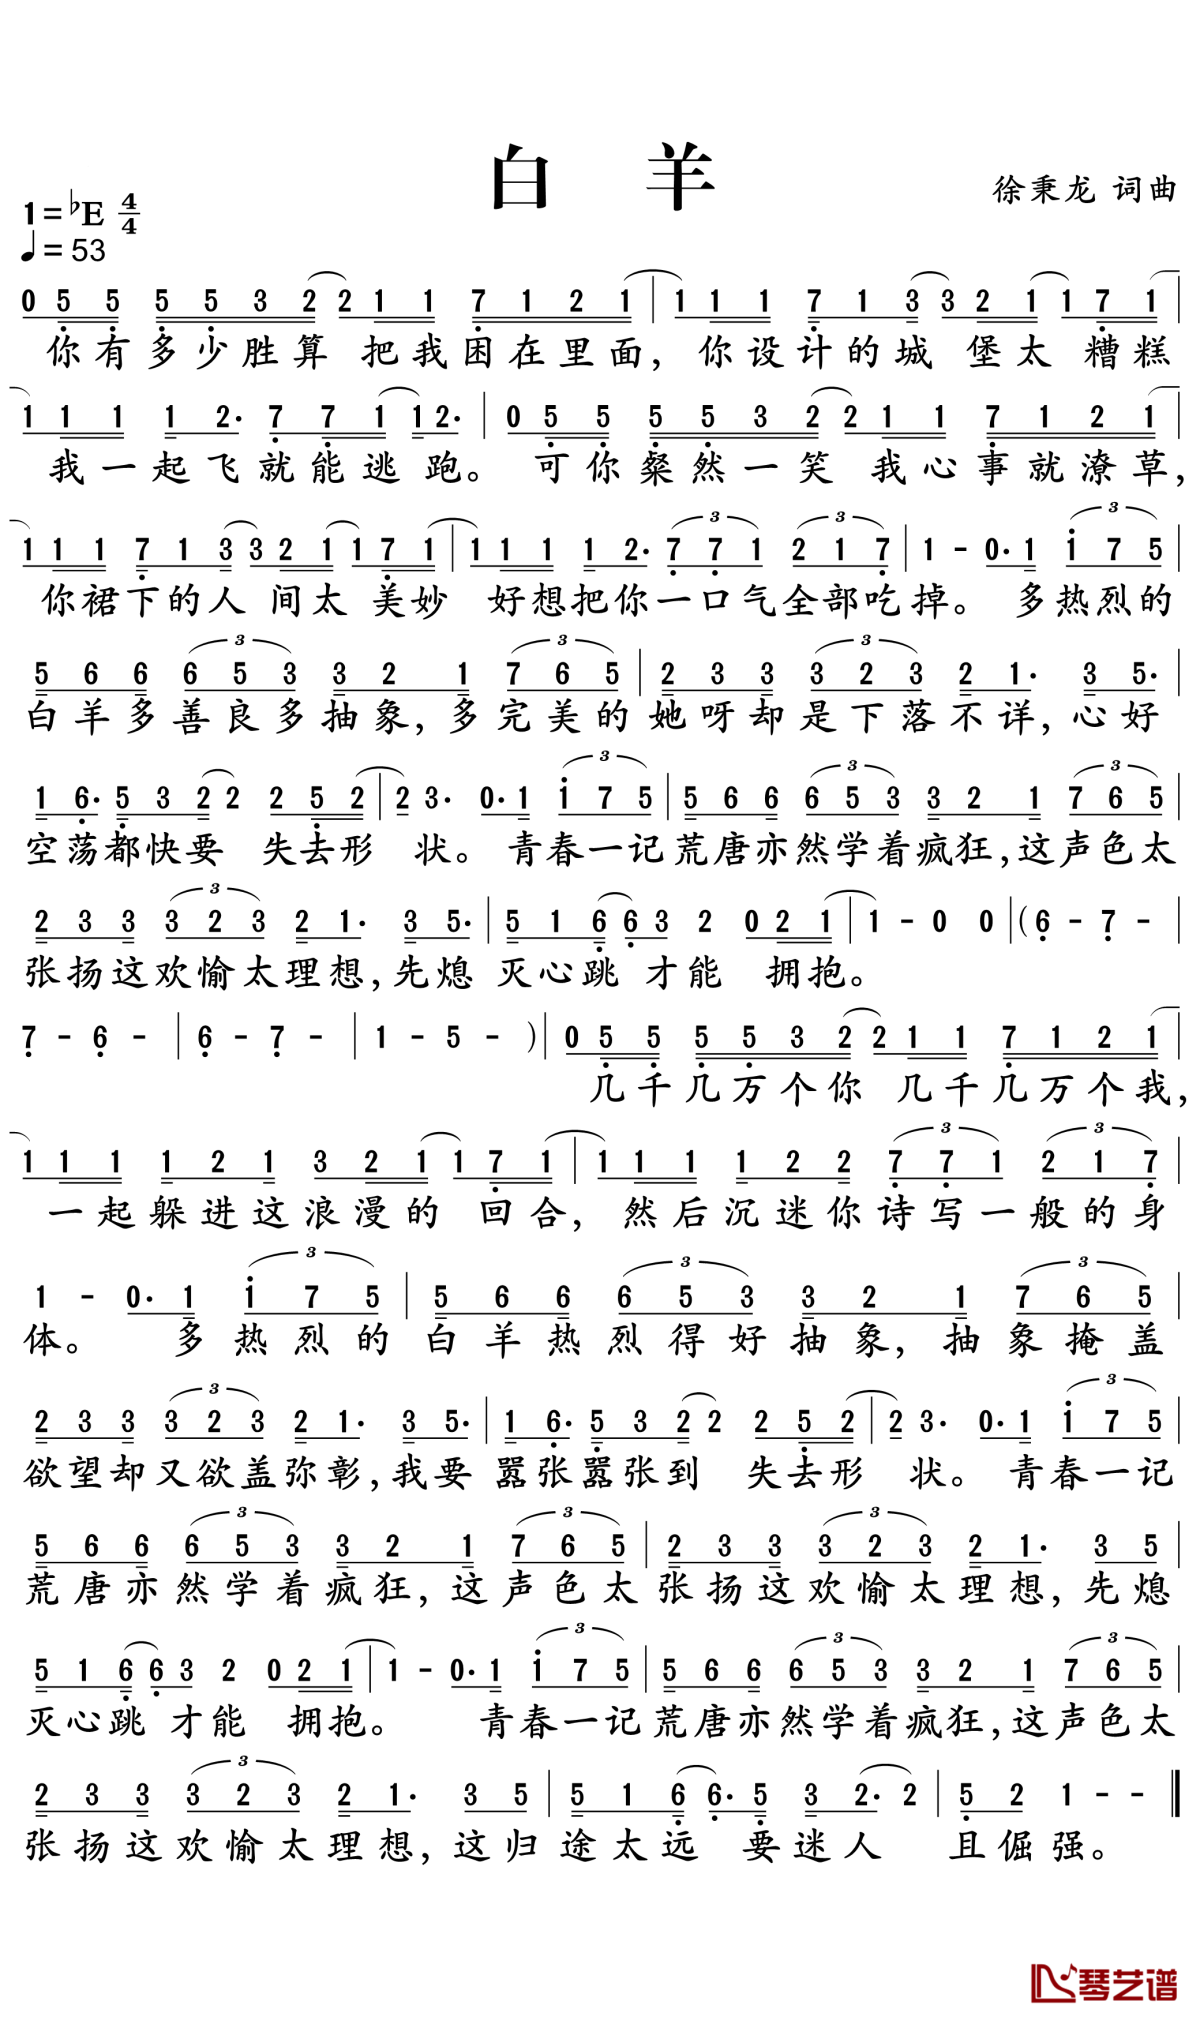 白 羊
徐秉龙 词曲
1=♭E 4/4
♩=53
0 5 5 5 5 3 2 2 1 1 7 1 2 1 | 1 1 1 7 1 3 3 2 1 1 7 1 |
你有多少胜算 把我困在里面，你设计的城 堡太 糟糕
1 1 1 1 2· 7 7 1 1 2· | 0 5 5 5 5 3 2 2 1 1 7 1 2 1 |
我一起飞就能逃 跑。 可你粲然一笑 我心事就潦草，
1 1 1 7 1 3 3 2 1 1 7 1 | 1 1 1 1 2· 7 7 1 2 1 7 | 1 - 0· 1 1 7 5
3 3 3
你裙下的人 间太 美妙 好想把你一口气全部吃掉。 多热烈的
3 3 3
5 6 6 6 5 3 3 2 1 7 6 5 | 2 3 3 3 2 3 2 1· 3 5· |
白羊多善良多抽象，多完美的她呀却是下落不详，心好
3 3 3
1 6· 5 3 2 2 2 5 2 | 2 3· 0· 1 1 7 5 | 5 6 6 6 5 3 3 2 1 7 6 5 |
空荡都快要 失去形 状。 青春一记荒唐亦然学着疯狂，这声色太
3
2 3 3 3 2 3 2 1· 3 5· | 5 1 6 6 3 2 0 2 1 | 1 - 0 0 | (6 - 7 - |
张扬这欢愉太理想，先熄 灭心跳 才能 拥抱。
7 - 6 - | 6 - 7 - | 1 - 5 - ) | 0 5 5 5 5 3 2 2 1 1 7 1 2 1 |
几千几万个你 几千几万个我，
3 3
1 1 1 1 2 1 3 2 1 1 7 1 | 1 1 1 1 2 2 7 7 1 2 1 7 |
一起躲进这浪漫的 回合，然后沉迷你诗写一般的身
3 3 3
1 - 0· 1 1 7 5 | 5 6 6 6 5 3 3 2 1 7 6 5 |
体。 多热烈的 白羊热烈得好抽象，抽象掩盖
3 3
2 3 3 3 2 3 2 1· 3 5· | 1 6· 5 3 2 2 2 5 2 | 2 3· 0· 1 1 7 5
欲望却又欲盖弥彰，我要 嚣张嚣张到 失去形 状。 青春一记
3 3 3
5 6 6 6 5 3 3 2 1 7 6 5 | 2 3 3 3 2 3 2 1· 3 5 |
荒唐亦然学着疯狂，这声色太张扬这欢愉太理想，先熄
3 3 3
5 1 6 6 3 2 0 2 1 | 1 - 0· 1 1 7 5 | 5 6 6 6 5 3 3 2 1 7 6 5 |
灭心跳 才能 拥抱。 青春一记荒唐亦然学着疯狂，这声色太
3
2 3 3 3 2 3 2 1· 3 5 | 5 1 6 6· 5 3 2· 2 | 5 2 1 - - ‖
张扬这欢愉太理想，这归途太远 要迷人 且倔强。
琴艺谱